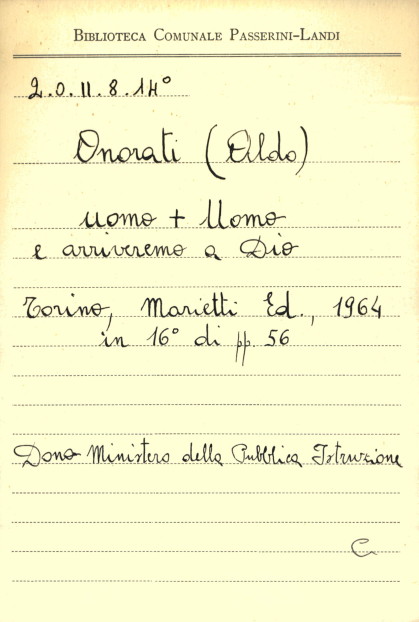 BIBLIOTECA COMUNALE PASSERINI-LANDI
2.0.II.8.14°
Onorati (Aldo)
uomo + Uomo
e arriveremo a Dio
Torino, Marietti Ed., 1964
in 16° di pp. 56
Dono Ministero della Pubblica Istruzione
C